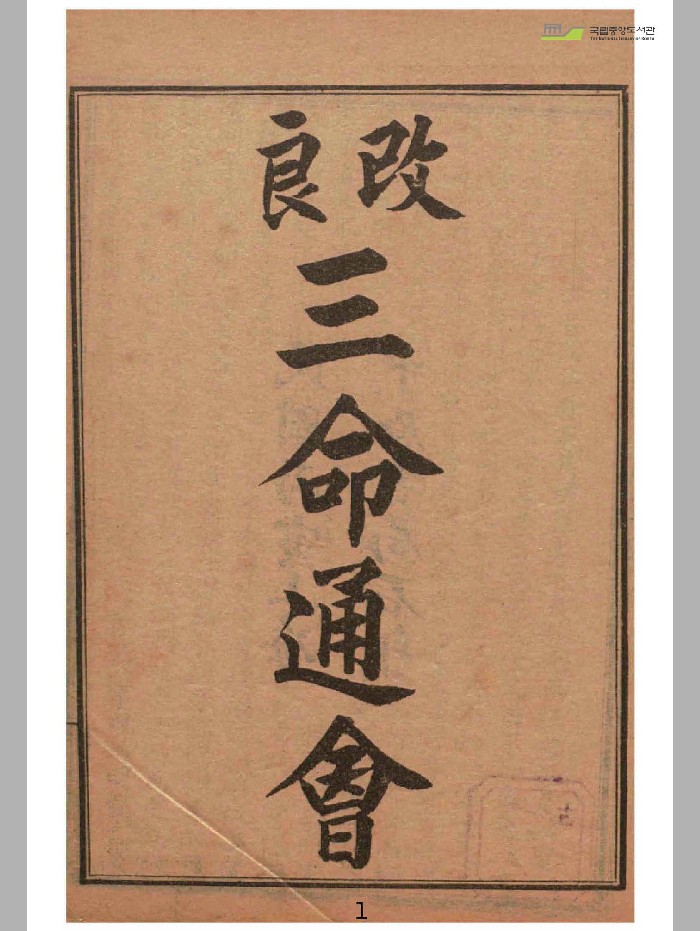 국립중앙도서관
THE NATIONAL LIBRARY OF KOREA
改良
三命通會
1